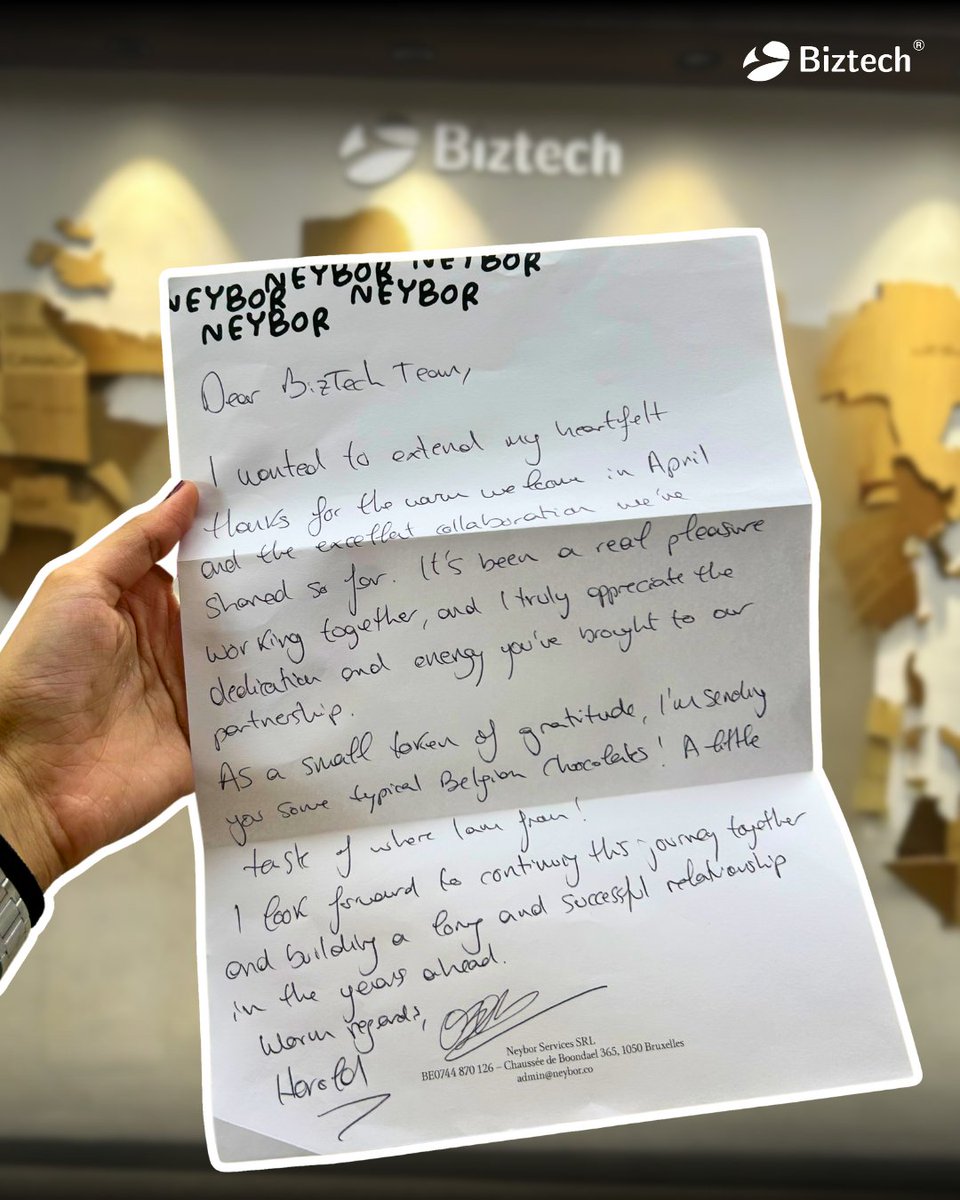 Biztech®
Biztech
NEYBOR NEYBOR NEYBOR
NEYBOR NEYBOR
Dear BizTech Team,
I wanted to extend my heartfelt
thanks for the warm welcom in April
and the excellent collaboration we've
shared so far. It's been a real pleasure
working together, and I truly appreciate the
dedication and energy you've brought to our
partnership.
As a small token of gratitude, I'm sending
you some typical Belgian chocolats! A little
task of where I am from!
I look forward to continuing this journey together
and building a long and successful relationship
in the years ahead.
Warm regards,
Harold
Neybor Services SRL
BE0744 870 126 – Chaussée de Boondael 365, 1050 Bruxelles
admin@neybor.co